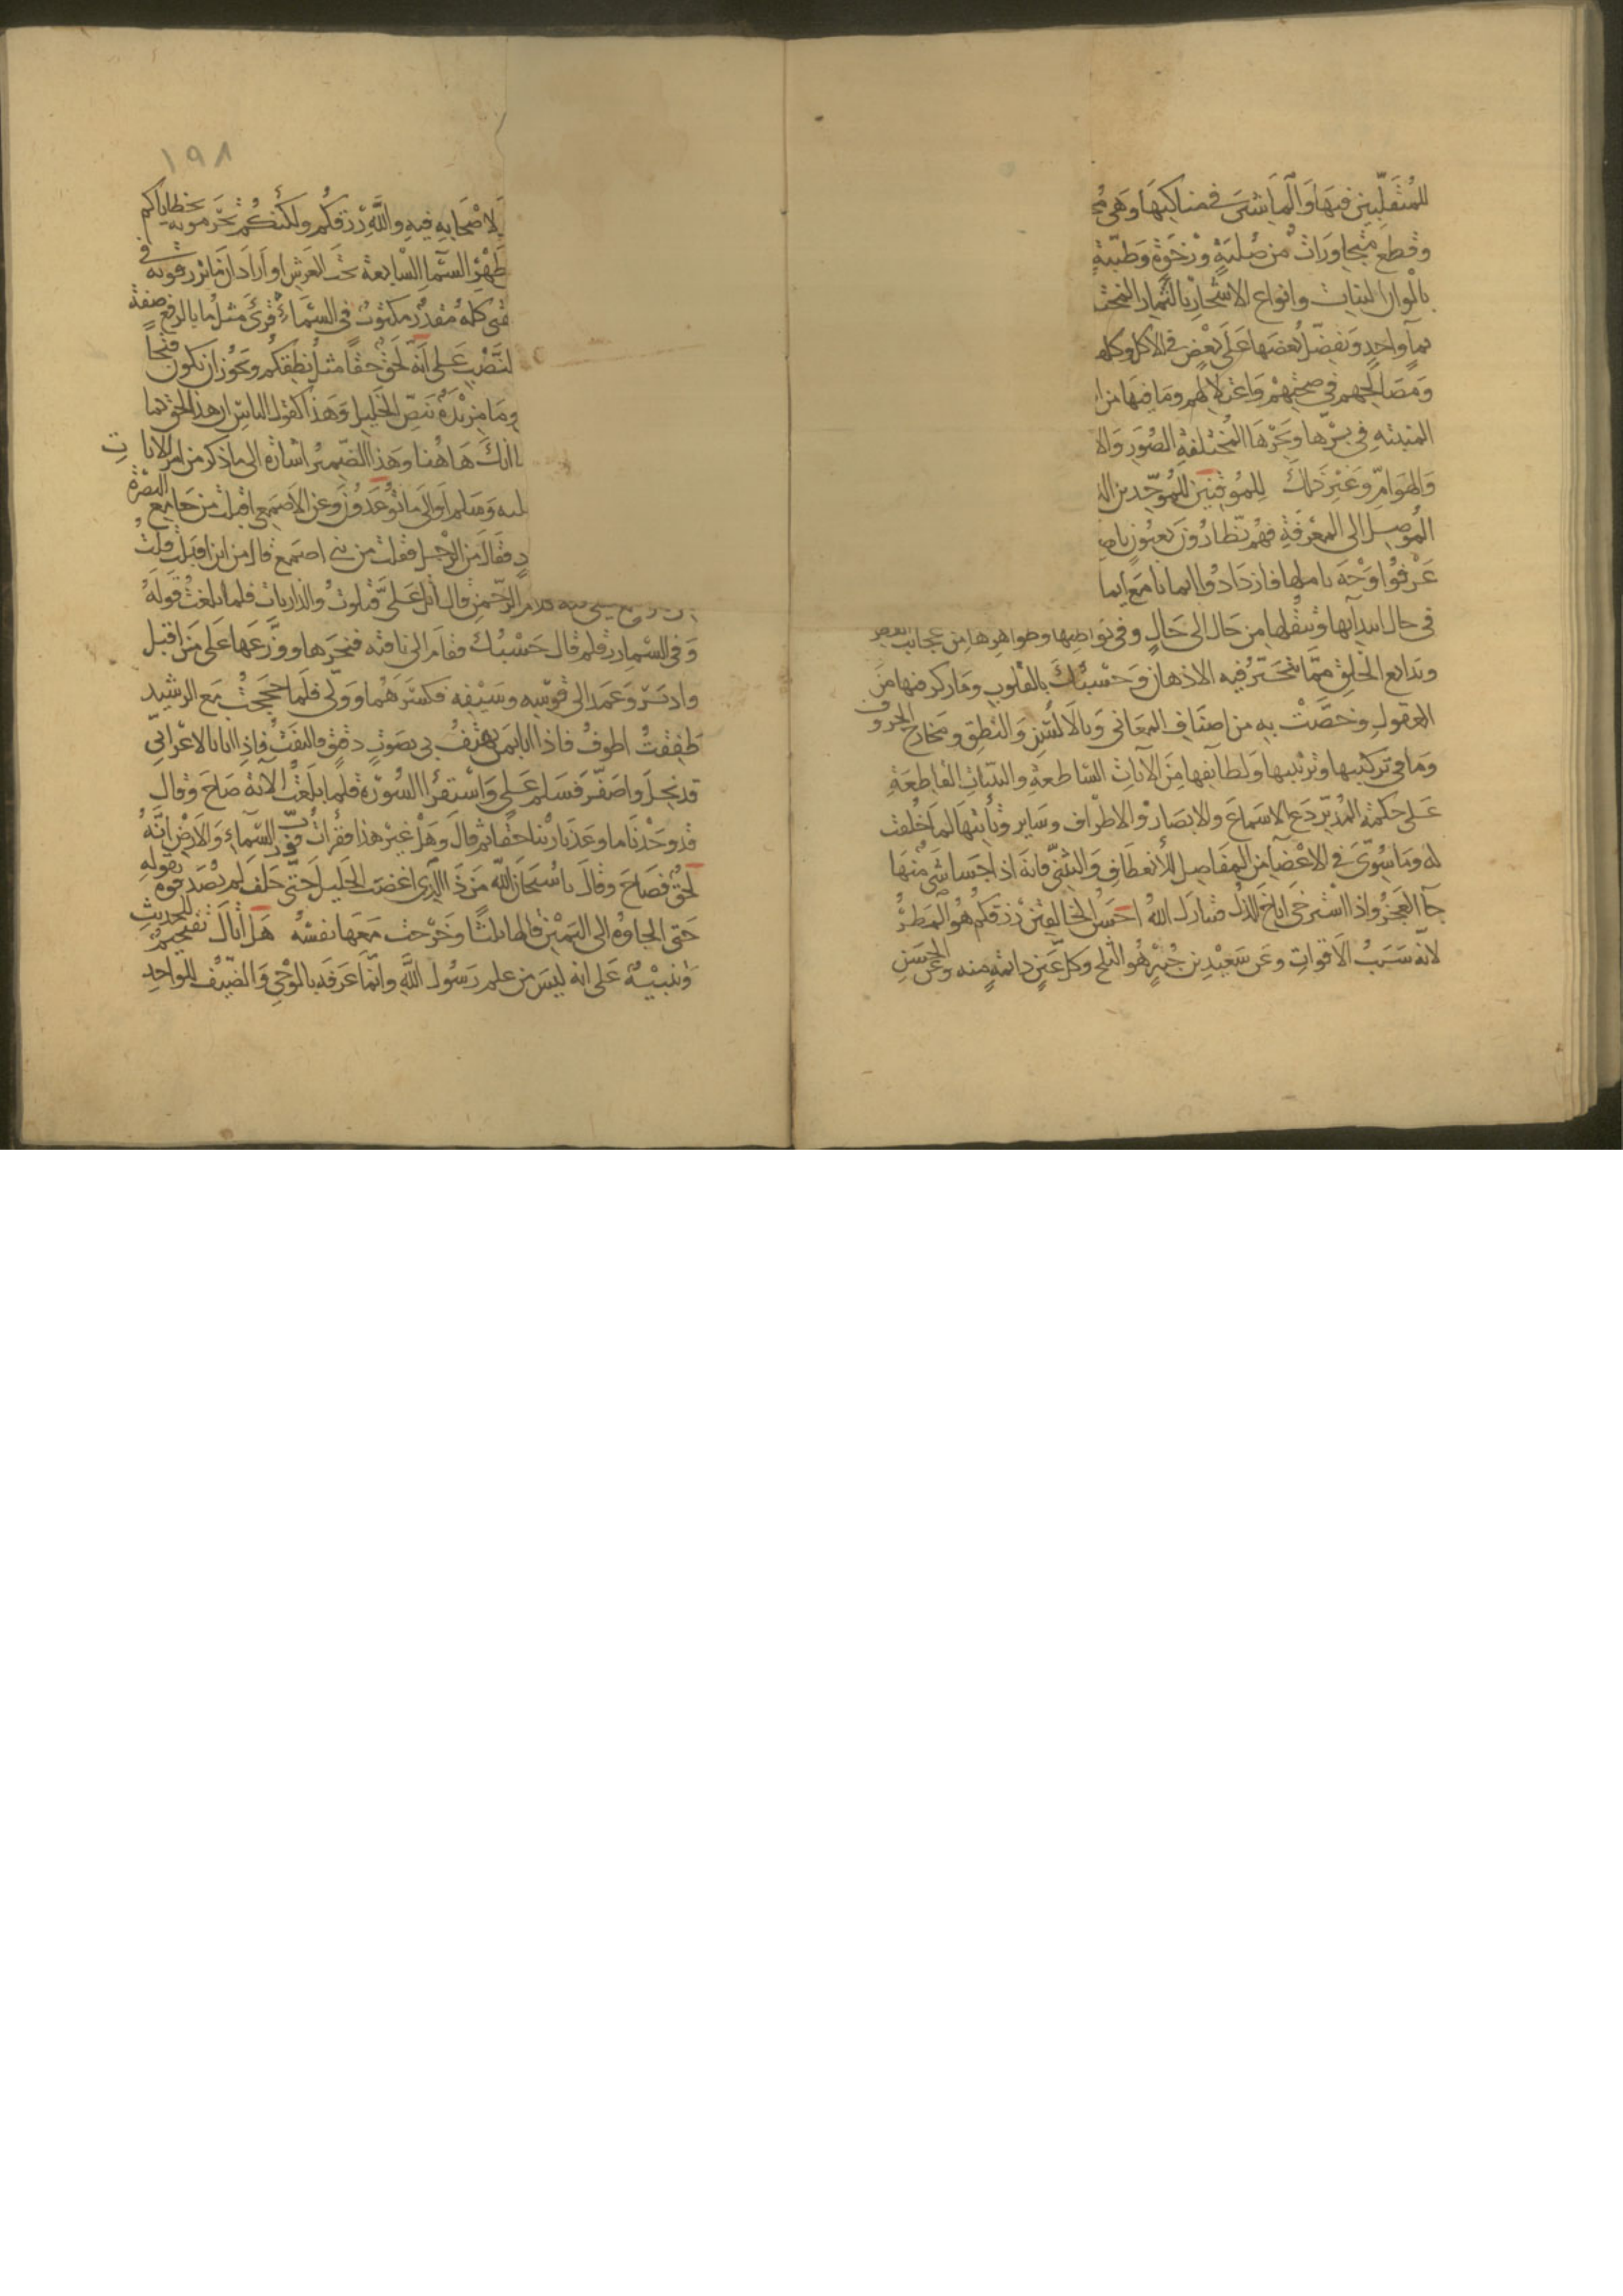 للمتقلبين فيها والماشين في مناكبها وهي مج
وقطع متجاورات من صلبة ورخوة وطيبة
بالوان النبات وانواع الاشجار بالثمار المختـ
بماٍ واحدٍ ونفضل بعضها على بعض في الاكل وكلها
ومصالحهم في صحتهم واعتلالهم وما فيها من ا
المنبتة في برها وبحرها المختلفة الصور والا
والهوام وغير ذلك للموقنين للموحدين الذ
الموصل الى المعرفة فهم نظارون بعيون با
عرفوا وجه تاملها فازدادوا ايمانا مع ايما
في حال ابتدايها وتنقلها من حال الى حال وفي بواطنها وظواهرها من عجائب الفطر
وبدايع الخلق مما تتحير فيه الاذهان وحسبك بالقلوب وما ركز فيها من
العقول وخصت به من اصناف المعاني وبالالسن والنطق ومخارج الحروف
وما في تركيبها وترتيبها ولطايفها من الآيات الساطعة والبينات القاطعة
على حكمة المدبر دع الاسماع والابصار والاطراف وساير وتأتيها لما خلقت
له وما سوى في الاعضا من المفاصل للانعطاف والتثني فانه اذا جسا شي منها
جآ العجز واذا استرخى اناخ الذل فتبارك الله احسن الخالقين رزقكم هو المطر
لانه سبب الاقوات وعن سعيد بن جبير هو الثلج وكل عين دائمة منه وعن الحسن
١٩٨
لاصحابه فيه والله رزقكم ولكنكم تحرمونه بخطاياكم
ظهر السما السابعة تحت العرش او اراد ان ما ترزقونه في
قبى كله مقدر مكتوب في السماء قرئ مثل ما بالرفع صفة
لنصب على انه لحق حقا مثل نطقكم ويجوز ان يكون فتحا
وما مزيدة بنص الخليل وهذا كقول الناس ان هذا لحق كما
ا انك هاهنا وهذا الضمير اشارة الى ما ذكر من امر الايات
ليه وسلم او الى ما توعدون وعن الاصمعي اقبلت من جامع البصرة
د فقال من الرجل فقلت من بني اصمع قال من اين اقبلت قلت
كلام الرحمن قال اتل علي فتلوت والذاريات فلما بلغت قوله
وفي السما رزقكم قال حسبك فقام الى ناقته فنحرها ووزعها على من اقبل
وادبر وعمد الى قوسه وسيفه فكسرهما وولى فلما حججت مع الرشيد
طفقت اطوف فاذا انا بمن يهتف بي بصوت دقيق فالتفت فاذا انا بالاعرابي
قد نحل واصفر فسلم علي واستقرا السورة فلما بلغت الآية صاح وقال
قد وجدنا ما وعدنا ربنا حقا ثم قال وهل غير هذا فقرات فورب السماء والارض انه
لحق فصاح وقال يا سبحان الله من ذا الذي اغضب الجليل حتى حلف لم يصدقوه بقوله
حتى الجاوه الى اليمين قالها ثلثا وخرجت معها نفسه هل اتاك تفخيم للحديث
وتنبيه على انه ليس من علم رسول الله وانما عرفه بالوحي والضيف للواحد